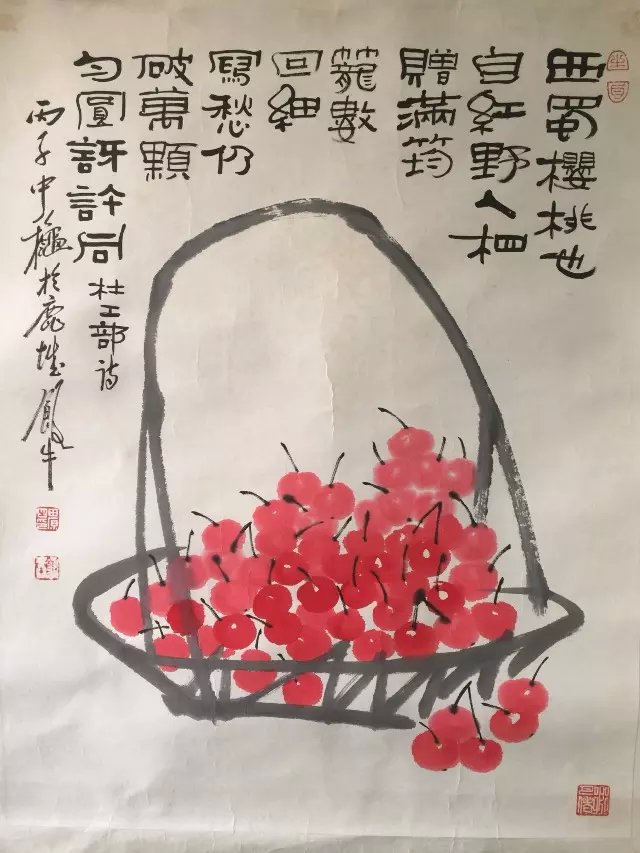 西蜀櫻桃也
自紅野人相
贈滿筠
籠數
回細
寫愁仍
破萬顆
勻圓訝許同
杜工部詩
丙子中龝於鹿城